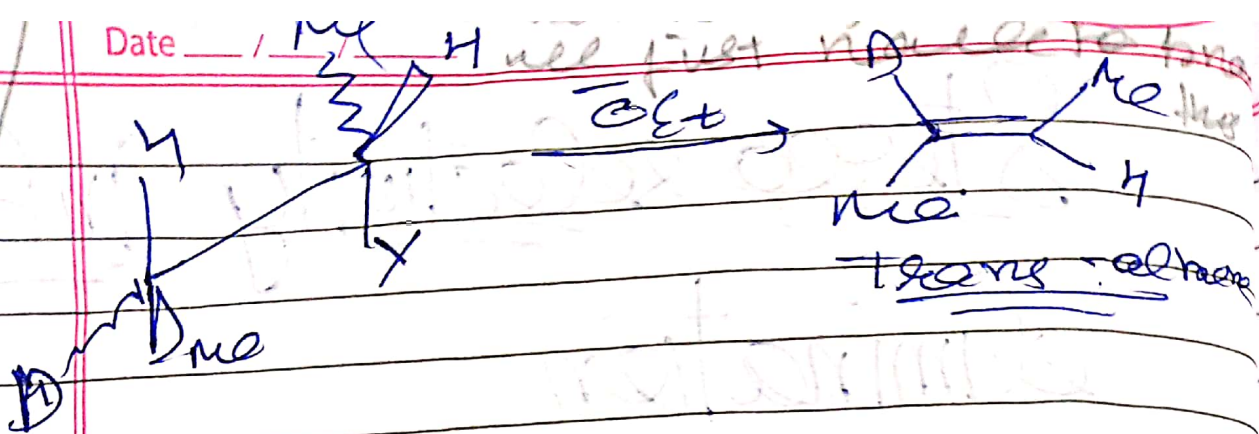 Date ___ / ___ / ___
Me H
H ŌEt D Me
Y Me H
Me trans-alkene
D